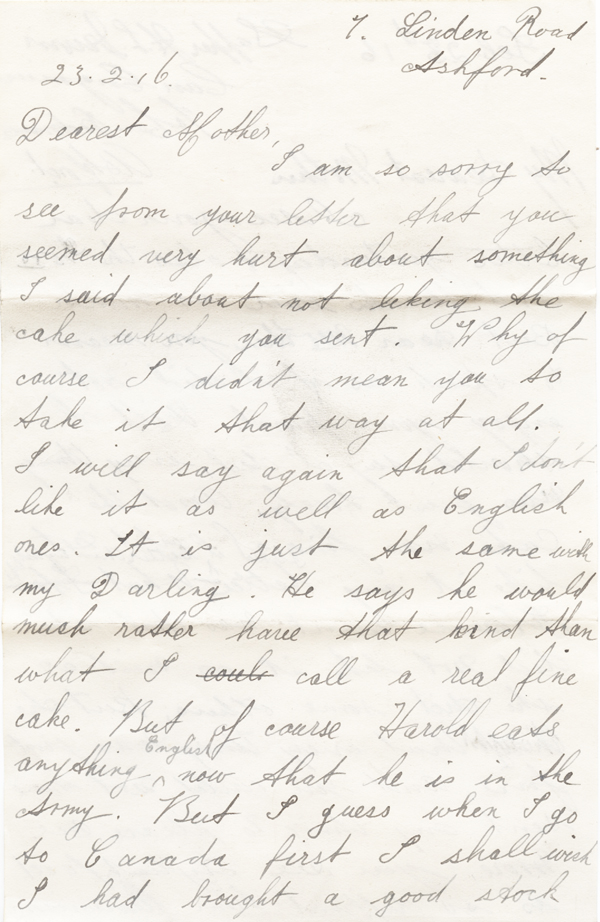 7. Linden Road
Ashford.
23.2.16.
Dearest Mother,
I am so sorry to
see from your letter that you
seemed very hurt about something
I said about not liking the
cake which you sent. Why of
course I didn't mean you to
take it that way at all.
I will say again that I don't
like it as well as English
ones. It is just the same with
my Darling. He says he would
much rather have that kind than
what I couls call a real fine
cake. But of course Harold eats
anything ^ English now that he is in the
Army. But I guess when I go
to Canada first I shall wish
I had brought a good stock